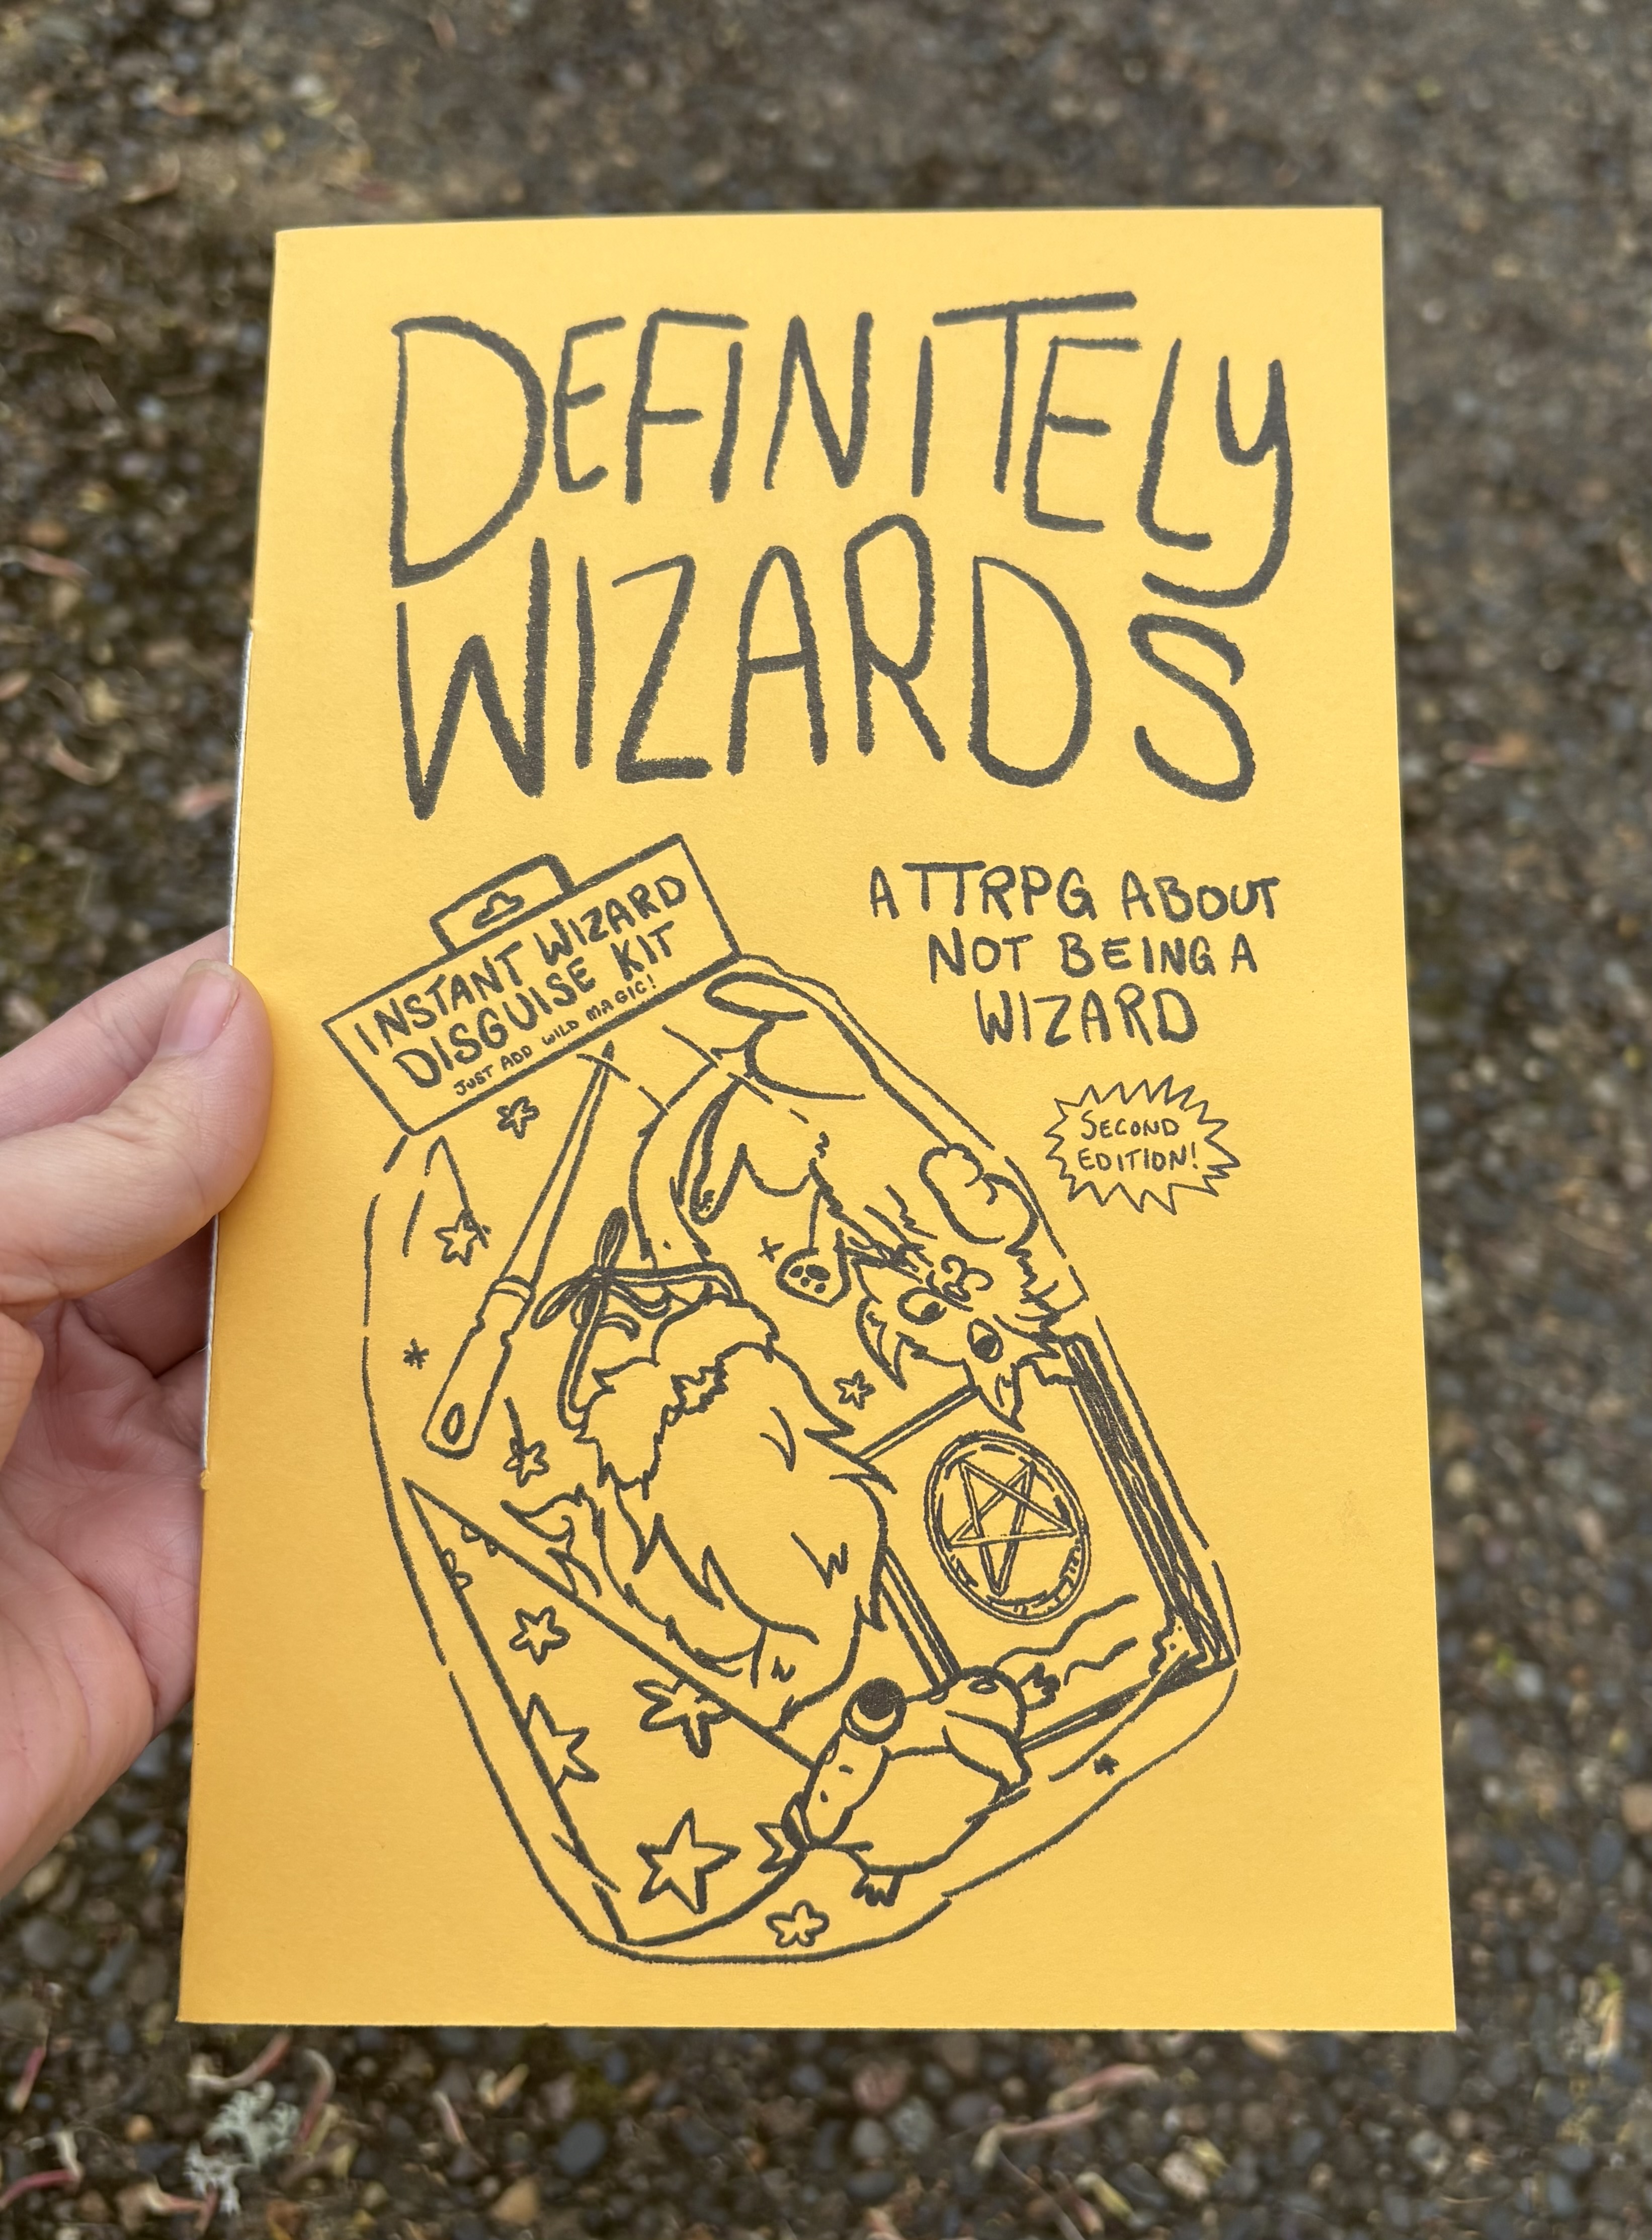 DEFINITELY
WIZARDS
A TTRPG ABOUT
NOT BEING A
WIZARD
SECOND
EDITION!
INSTANT WIZARD
DISGUISE KIT
JUST ADD WILD MAGIC!